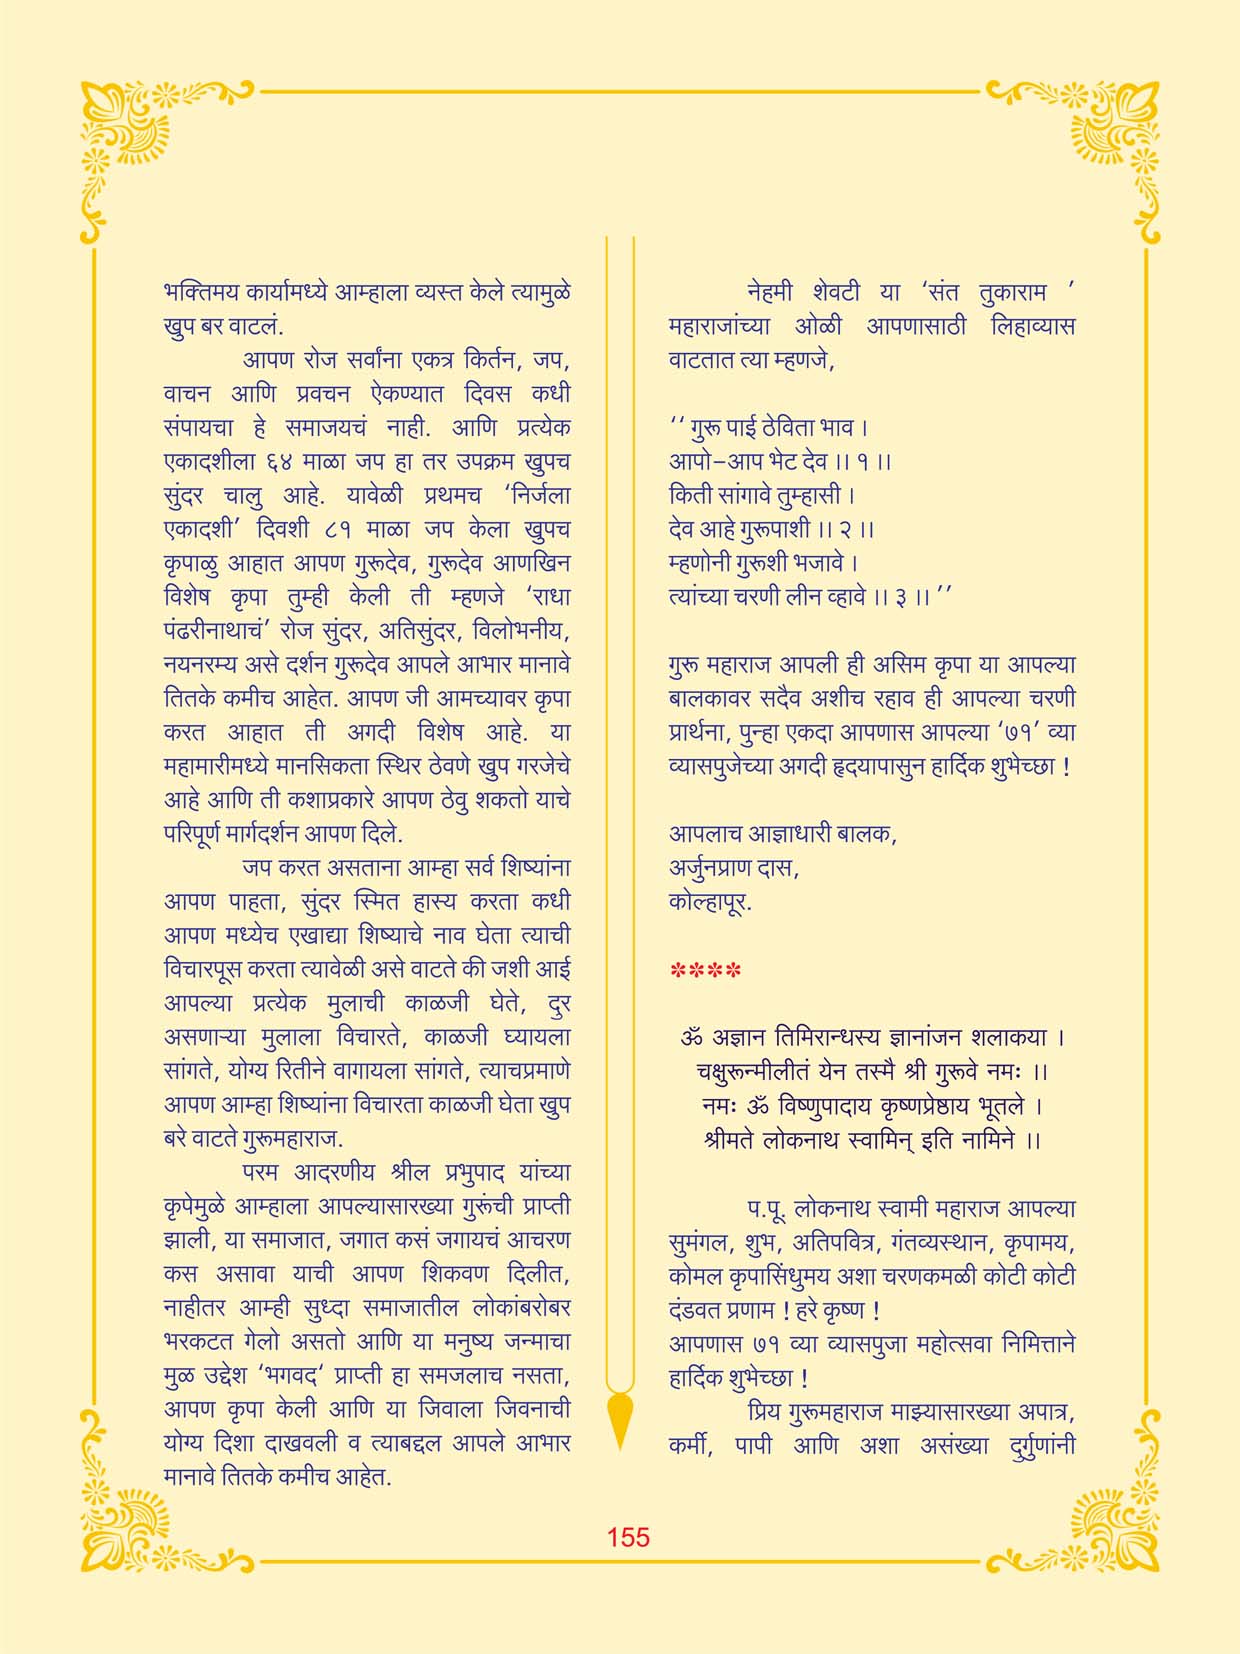 भक्तिमय कार्यामध्ये आम्हाला व्यस्त केले त्यामुळे
खुप बर वाटलं.
आपण रोज सर्वांना एकत्र किर्तन, जप,
वाचन आणि प्रवचन ऐकण्यात दिवस कधी
संपायचा हे समाजयचं नाही. आणि प्रत्येक
एकादशीला ६४ माळा जप हा तर उपक्रम खुपच
सुंदर चालु आहे. यावेळी प्रथमच ‘निर्जला
एकादशी’ दिवशी ८१ माळा जप केला खुपच
कृपाळु आहात आपण गुरूदेव, गुरूदेव आणखिन
विशेष कृपा तुम्ही केली ती म्हणजे ‘राधा
पंढरीनाथाचं’ रोज सुंदर, अतिसुंदर, विलोभनीय,
नयनरम्य असे दर्शन गुरूदेव आपले आभार मानावे
तितके कमीच आहेत. आपण जी आमच्यावर कृपा
करत आहात ती अगदी विशेष आहे. या
महामारीमध्ये मानसिकता स्थिर ठेवणे खुप गरजेचे
आहे आणि ती कशाप्रकारे आपण ठेवु शकतो याचे
परिपूर्ण मार्गदर्शन आपण दिले.
जप करत असताना आम्हा सर्व शिष्यांना
आपण पाहता, सुंदर स्मित हास्य करता कधी
आपण मध्येच एखाद्या शिष्याचे नाव घेता त्याची
विचारपूस करता त्यावेळी असे वाटते की जशी आई
आपल्या प्रत्येक मुलाची काळजी घेते, दुर
असणाऱ्या मुलाला विचारते, काळजी घ्यायला
सांगते, योग्य रितीने वागायला सांगते, त्याचप्रमाणे
आपण आम्हा शिष्यांना विचारता काळजी घेता खुप
बरे वाटते गुरूमहाराज.
परम आदरणीय श्रील प्रभुपाद यांच्या
कृपेमुळे आम्हाला आपल्यासारख्या गुरूंची प्राप्ती
झाली, या समाजात, जगात कसं जगायचं आचरण
कस असावा याची आपण शिकवण दिलीत,
नाहीतर आम्ही सुध्दा समाजातील लोकांबरोबर
भरकटत गेलो असतो आणि या मनुष्य जन्माचा
मुळ उद्देश ‘भगवद‘ प्राप्ती हा समजलाच नसता,
आपण कृपा केली आणि या जिवाला जिवनाची
योग्य दिशा दाखवली व त्याबद्दल आपले आभार
मानावे तितके कमीच आहेत.
नेहमी शेवटी या ‘संत तुकाराम ’
महाराजांच्या ओळी आपणासाठी लिहाव्यास
वाटतात त्या म्हणजे,
‘‘ गुरू पाई ठेविता भाव ।
आपो-आप भेट देव ।। १ ।।
किती सांगावे तुम्हासी ।
देव आहे गुरूपाशी ।। २ ।।
म्हणोनी गुरूशी भजावे ।
त्यांच्या चरणी लीन व्हावे ।। ३ ।। ’’
गुरू महाराज आपली ही असिम कृपा या आपल्या
बालकावर सदैव अशीच रहाव ही आपल्या चरणी
प्रार्थना, पुन्हा एकदा आपणास आपल्या ‘७१’ व्या
व्यासपुजेच्या अगदी हृदयापासुन हार्दिक शुभेच्छा !
आपलाच आज्ञाधारी बालक,
अर्जुनप्राण दास,
कोल्हापूर.
****
ॐ अज्ञान तिमिरान्धस्य ज्ञानांजन शलाकया ।
चक्षुरून्मीलीतं येन तस्मै श्री गुरूवे नमः ।।
नमः ॐ विष्णुपादाय कृष्णप्रेष्ठाय भूतले ।
श्रीमते लोकनाथ स्वामिन् इति नामिने ।।
प.पू. लोकनाथ स्वामी महाराज आपल्या
सुमंगल, शुभ, अतिपवित्र, गंतव्यस्थान, कृपामय,
कोमल कृपासिंधुमय अशा चरणकमळी कोटी कोटी
दंडवत प्रणाम ! हरे कृष्ण !
आपणास ७१ व्या व्यासपुजा महोत्सवा निमित्ताने
हार्दिक शुभेच्छा !
प्रिय गुरूमहाराज माझ्यासारख्या अपात्र,
कर्मी, पापी आणि अशा असंख्या दुर्गुणांनी
155